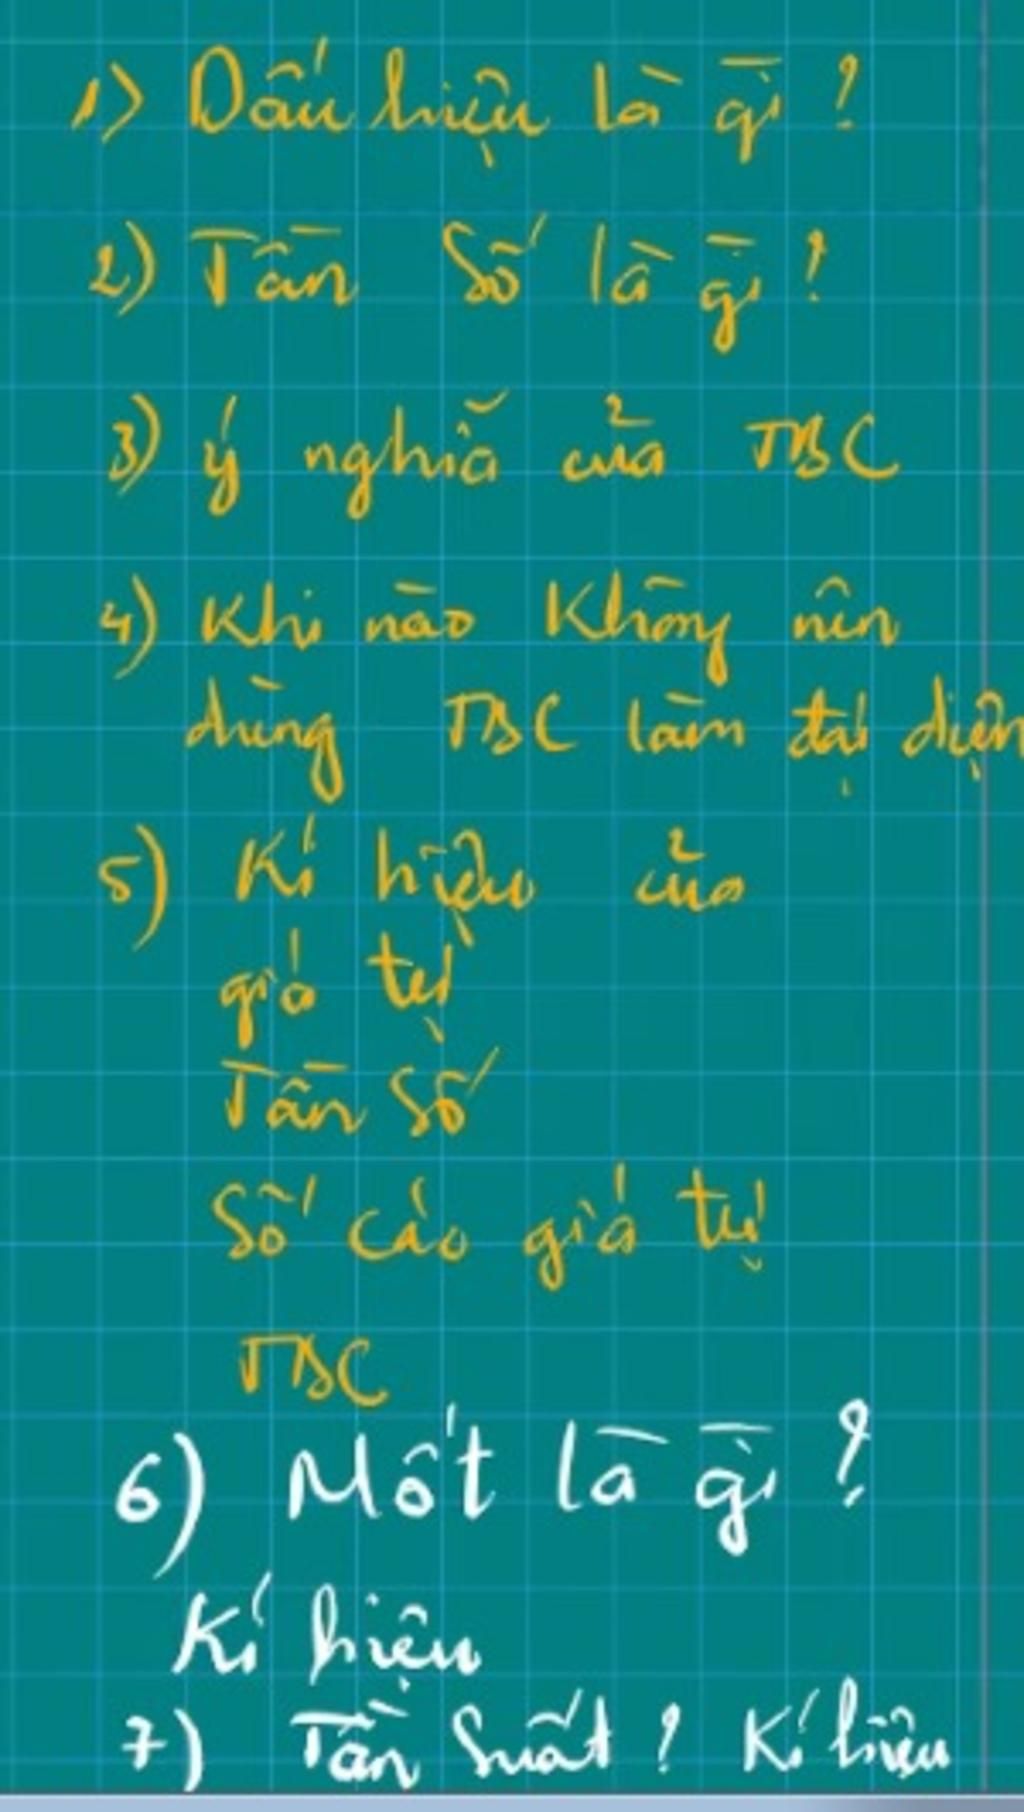 1) Dấu hiệu là gì ?
2) Tần số là gì ?
3) ý nghĩa của TBC
4) Khi nào không nên
dùng TBC làm đại diện
5) Kí hiệu của
giá trị
Tần số
Số các giá trị
TBC
6) Mốt là gì ?
Kí hiệu
7) Tần suất ? Kí hiệu